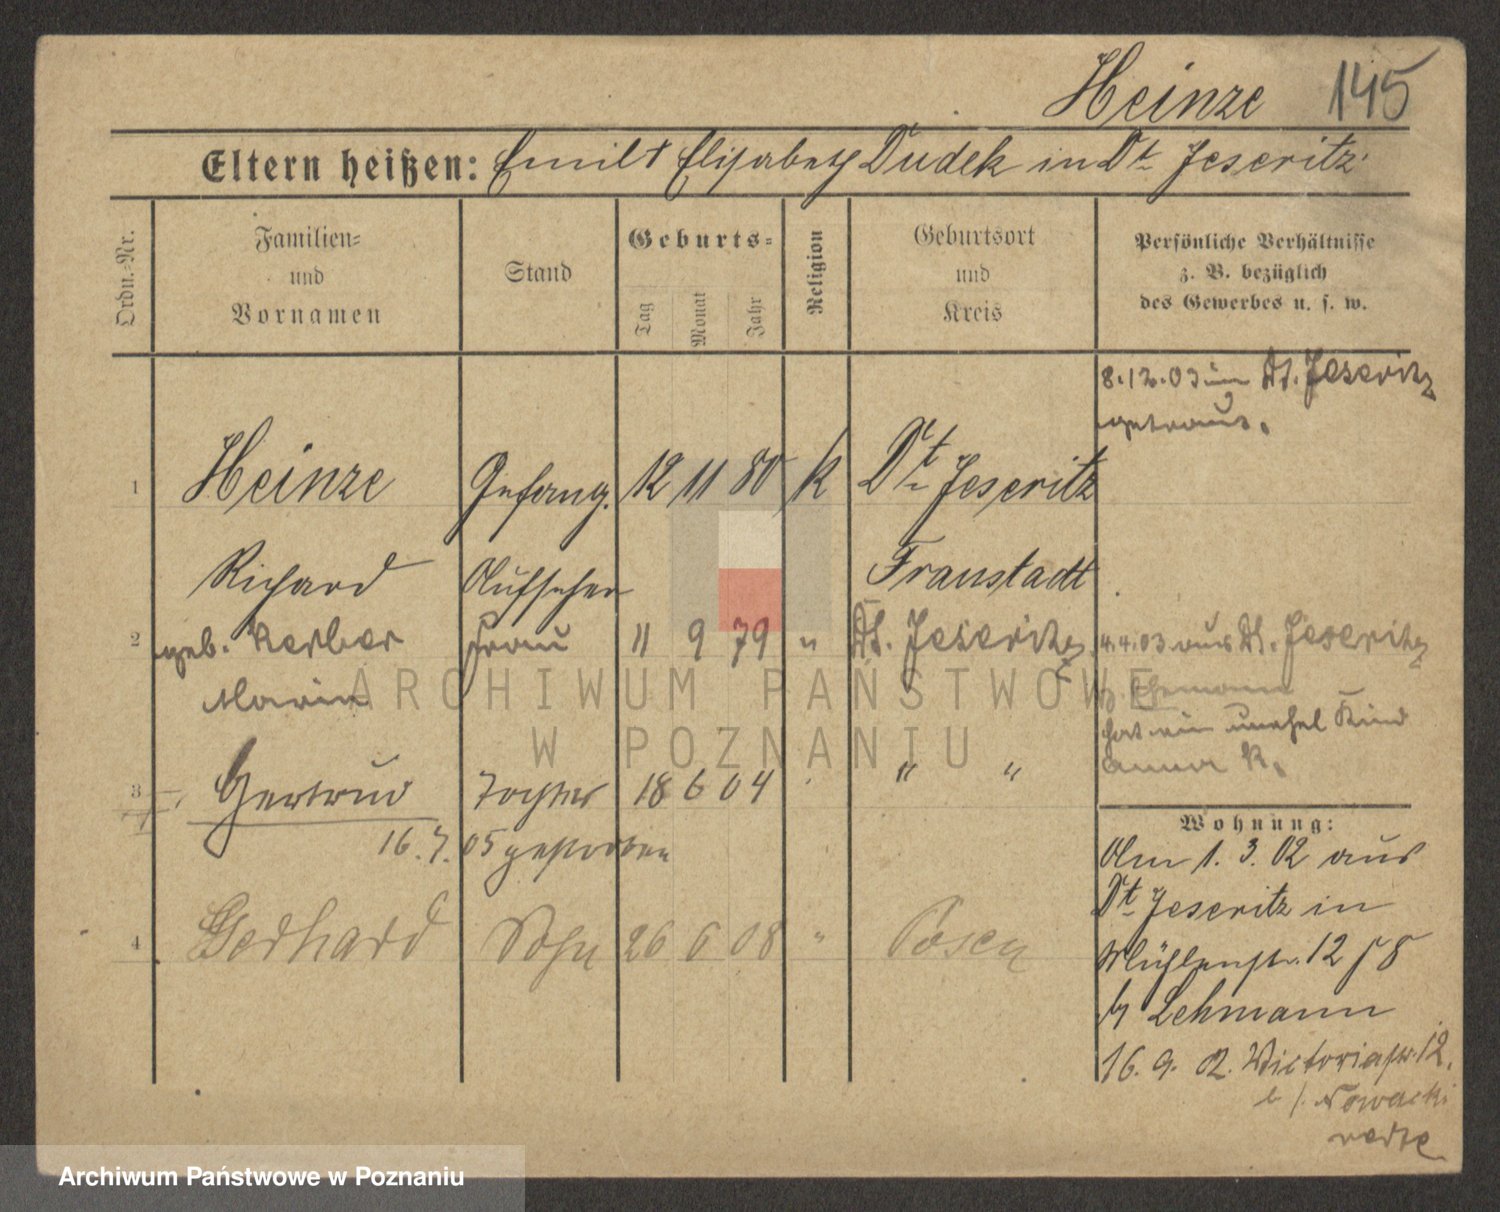 Heinze 145
Eltern heißen: Emil & Elisabeth Dudek in Dt. Jeseritz
Ordn.-Nr.
Familien-
und
Vornamen
Stand
Geburts-
Tag Monat Jahr
Religion
Geburtsort
und
Kreis
Persönliche Verhältnisse
z. B. bezüglich
des Gewerbes u. s. w.
8.12.03 in Dt. Jeseritz
getraut.
1 Heinze Gefang. 12 11 80 k Dt. Jeseritz
Richard Aufseher Fraustadt
2 geb. Kerber Frau 11 9 79 " Dt. Jeseritz 4.4.03 aus Dt. Jeseritz
Maria
hat ein unehel Kind
Anna K.
3 Gertrud Tochter 18 6 04 " "
16.7.05 gestorben
4 Gerhard Sohn 26 6 08 " Posen
Wohnung:
Am 1.3.02 aus
Dt. Jeseritz in
Mühlenstr. 12
b/ Lehmann
16.9.02. Victoriastr. 12.
b/ Nowacki
ARCHIWUM PAŃSTWOWE
W POZNANIU
Archiwum Państwowe w Poznaniu